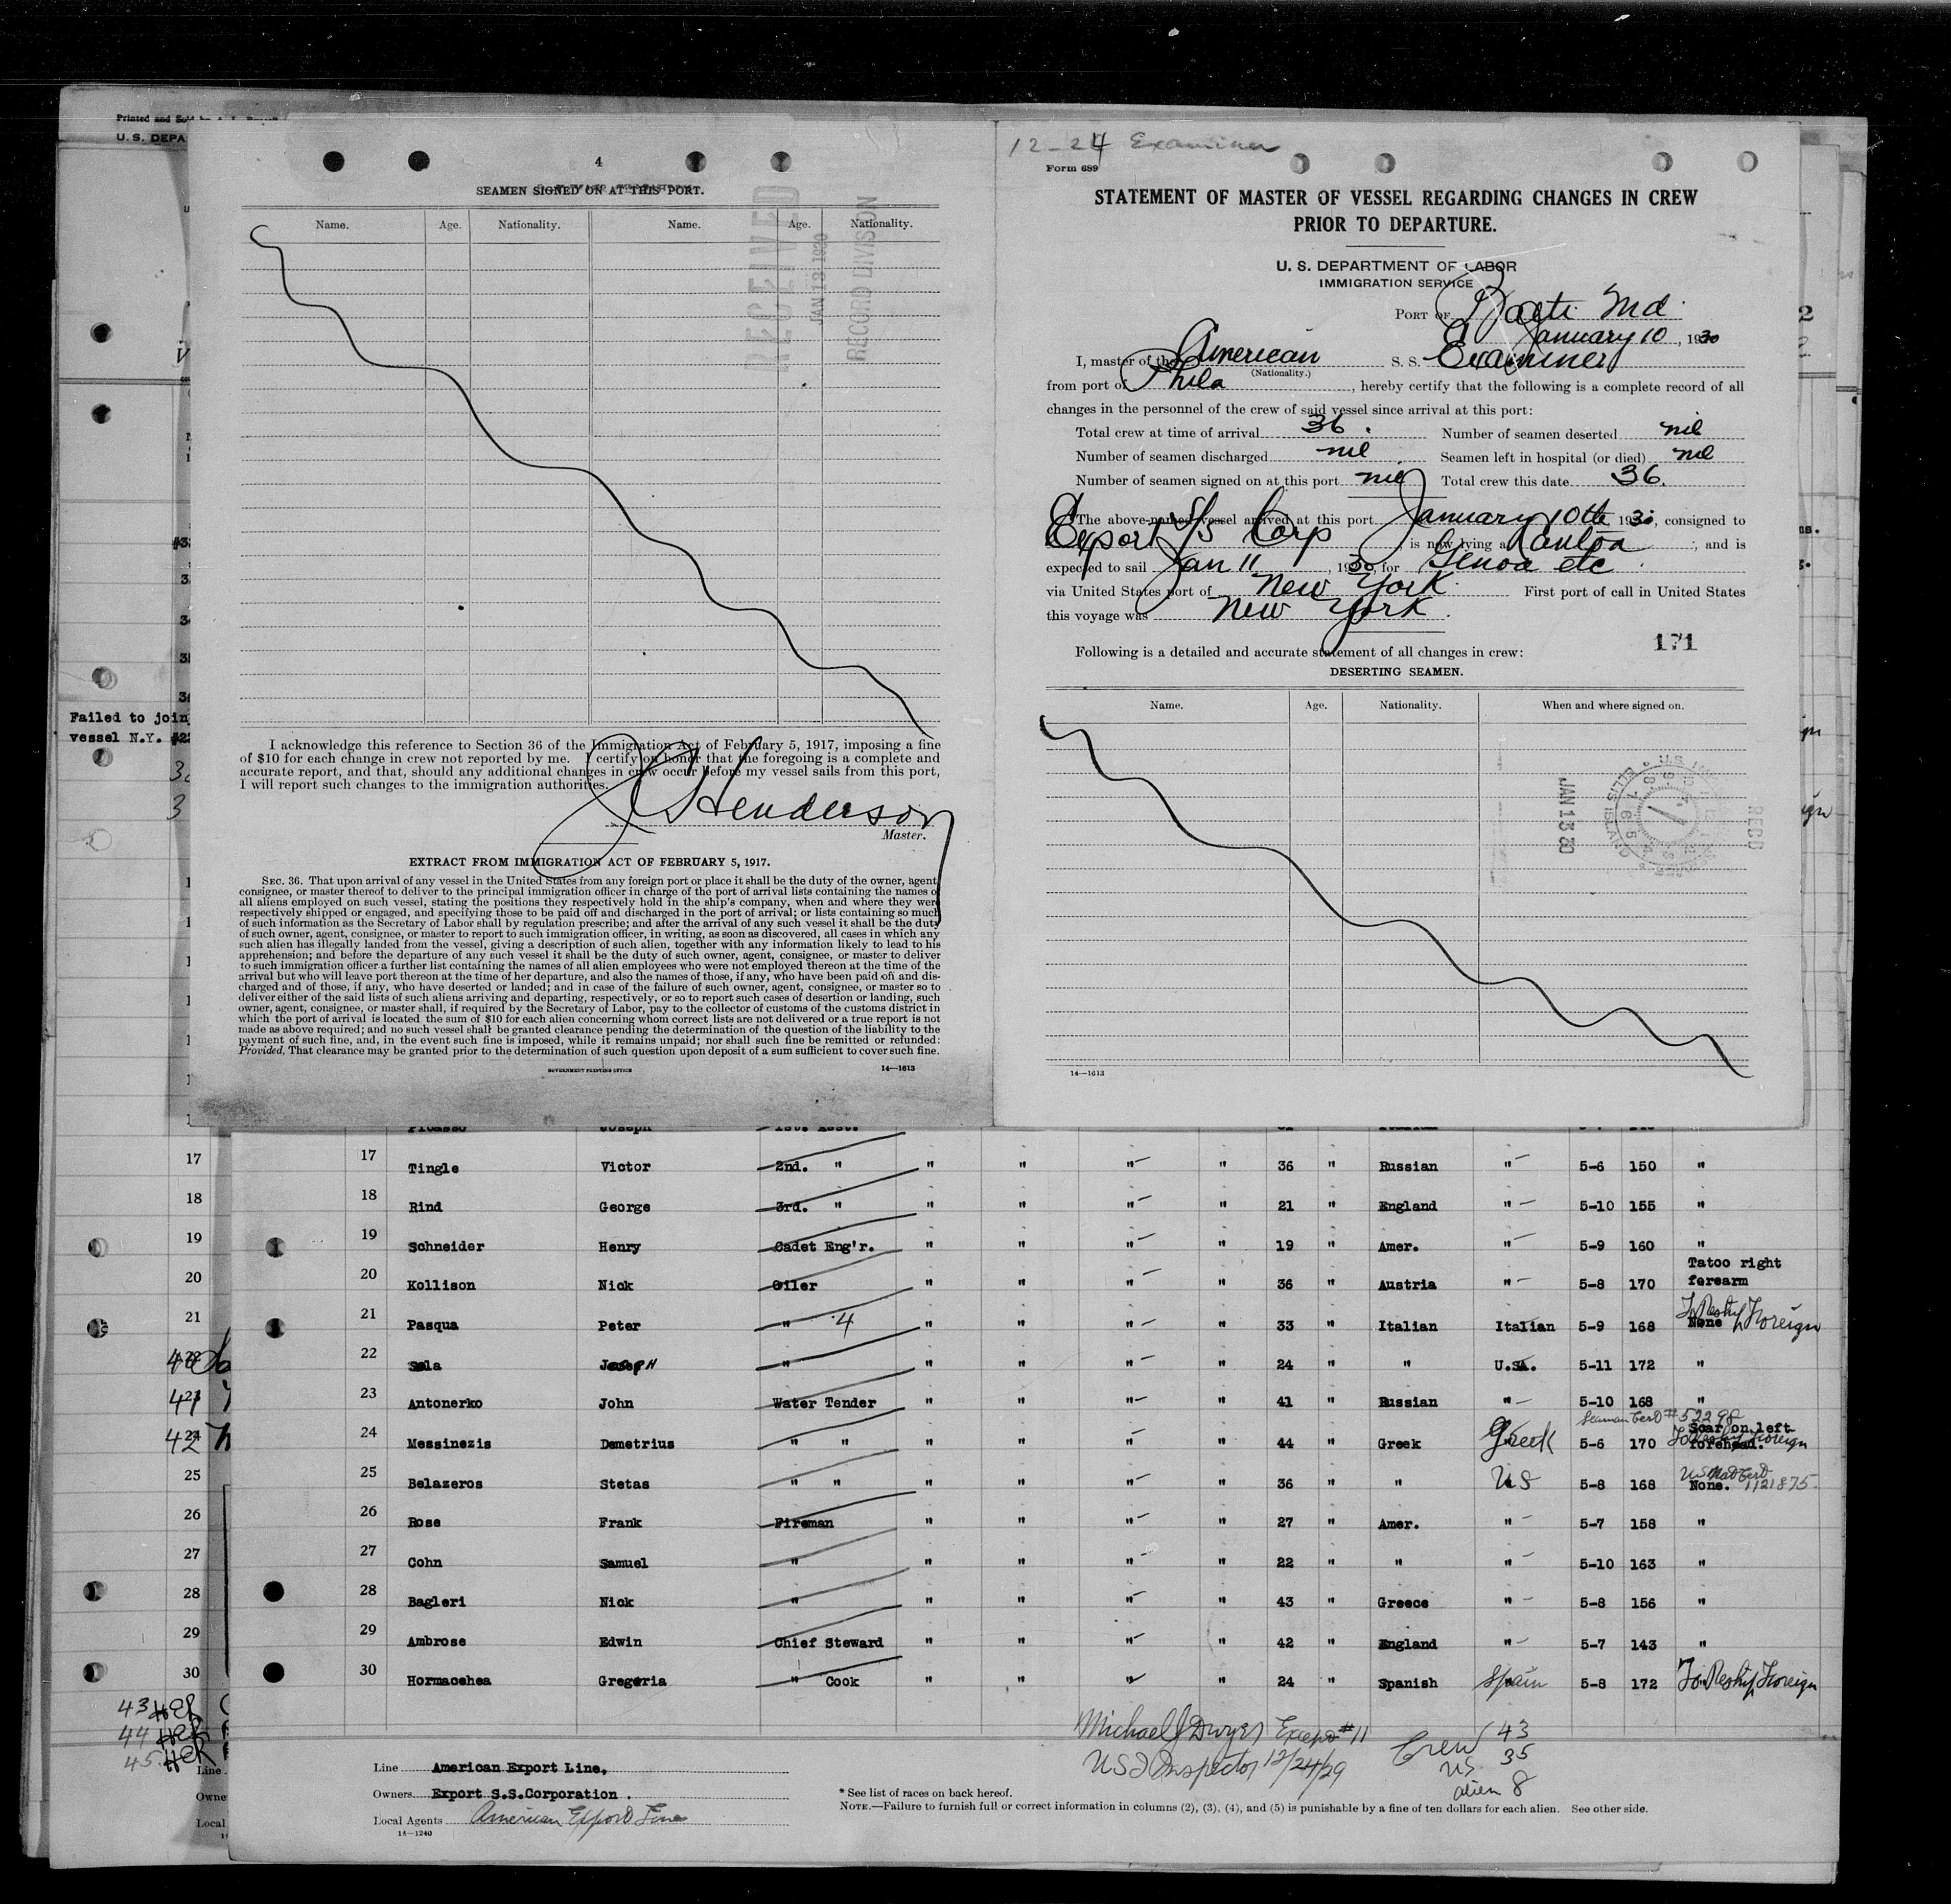 Printed and Sol
U. S. DEPA
4
SEAMEN SIGNED ON AT THIS PORT.
Name. Age. Nationality. Name. Age. Nationality.
RECEIVED
JAN 13 1930
RECORD DIVISION
I acknowledge this reference to Section 36 of the Immigration Act of February 5, 1917, imposing a fine
of $10 for each change in crew not reported by me. I certify on honor that the foregoing is a complete and
accurate report, and that, should any additional changes in crew occur before my vessel sails from this port,
I will report such changes to the immigration authorities.
Henderson
Master.
EXTRACT FROM IMMIGRATION ACT OF FEBRUARY 5, 1917.
SEC. 36. That upon arrival of any vessel in the United States from any foreign port or place it shall be the duty of the owner, agent,
consignee, or master thereof to deliver to the principal immigration officer in charge of the port of arrival lists containing the names of
all aliens employed on such vessel, stating the positions they respectively hold in the ship's company, when and where they were
respectively shipped or engaged, and specifying those to be paid off and discharged in the port of arrival; or lists containing so much
of such information as the Secretary of Labor shall by regulation prescribe; and after the arrival of any such vessel it shall be the duty
of such owner, agent, consignee, or master to report to such immigration officer, in writing, as soon as discovered, all cases in which any
such alien has illegally landed from the vessel, giving a description of such alien, together with any information likely to lead to his
apprehension; and before the departure of any such vessel it shall be the duty of such owner, agent, consignee, or master to deliver
to such immigration officer a further list containing the names of all alien employees who were not employed thereon at the time of the
arrival but who will leave port thereon at the time of her departure, and also the names of those, if any, who have been paid off and dis-
charged and of those, if any, who have deserted or landed; and in case of the failure of such owner, agent, consignee, or master so to
deliver either of the said lists of such aliens arriving and departing, respectively, or so to report such cases of desertion or landing, such
owner, agent, consignee, or master shall, if required by the Secretary of Labor, pay to the collector of customs of the customs district in
which the port of arrival is located the sum of $10 for each alien concerning whom correct lists are not delivered or a true report is not
made as above required; and no such vessel shall be granted clearance pending the determination of the question of the liability to the
payment of such fine, and, in the event such fine is imposed, while it remains unpaid; nor shall such fine be remitted or refunded:
Provided, That clearance may be granted prior to the determination of such question upon deposit of a sum sufficient to cover such fine.
GOVERNMENT PRINTING OFFICE 14—1613
12-24 Examiner
Form 689
STATEMENT OF MASTER OF VESSEL REGARDING CHANGES IN CREW
PRIOR TO DEPARTURE.
U. S. DEPARTMENT OF LABOR
IMMIGRATION SERVICE
PORT OF Balti Md.
January 10, 1930
I, master of the American S. S. Examiner
(Nationality.)
from port of Phila, hereby certify that the following is a complete record of all
changes in the personnel of the crew of said vessel since arrival at this port:
Total crew at time of arrival 36. Number of seamen deserted nil
Number of seamen discharged nil Seamen left in hospital (or died) nil
Number of seamen signed on at this port nil Total crew this date 36.
The above-named vessel arrived at this port January 10th 1930, consigned to
Export S/S Corp, is now lying at Canton, and is
expected to sail Jan 11, 1930, for Genoa etc.
via United States port of New York. First port of call in United States
this voyage was New York.
171
Following is a detailed and accurate statement of all changes in crew:
DESERTING SEAMEN.
Name. Age. Nationality. When and where signed on.
JAN 13 30
RECD
14—1613
Failed to join
vessel N.Y.
17 17 Tingle Victor 2nd. " " " " " 36 " Russian " 5-6 150 "
18 18 Rind George 3rd. " " " " " 21 " England " 5-10 155 "
19 19 Schneider Henry Cadet Eng'r. " " " " 19 " Amer. " 5-9 160 "
20 20 Kollison Nick Oiler " " " " 36 " Austria " 5-8 170 Tatoo right forearm
21 21 Pasqua Peter " 4 " " " " 33 " Italian Italian 5-9 168 None Foreign
22 22 Sala Joseph " " " " " 24 " " U.S.A. 5-11 172 "
41 23 Antonerko John Water Tender " " " " 41 " Russian " 5-10 168 "
Seaman Cert #52298
42 24 Messinezis Demetrius " " " " " " 44 " Greek Greek 5-6 170 Scar on left forehead. Foreign
25 25 Belazeros Stetas " " " " " " 36 " " US 5-8 168 None. US Nat Cert 1121875
26 26 Rose Frank Fireman " " " " 27 " Amer. " 5-7 158 "
27 27 Cohn Samuel " " " " " 22 " " " 5-10 163 "
28 28 Bagleri Nick " " " " " 43 " Greece " 5-8 156 "
29 29 Ambrose Edwin Chief Steward " " " " 42 " England " 5-7 143 "
30 30 Hormacehea Gregoria " Cook " " " " 24 " Spanish Spain 5-8 172 Foreign
43
44
45
Michael J Dwyer Except #11
US Inspector 12/24/29
Crew 43
US 35
alien 8
Line American Export Line,
Owners Export S.S.Corporation.
Local Agents American Export Line
14—1240
* See list of races on back hereof.
NOTE.—Failure to furnish full or correct information in columns (2), (3), (4), and (5) is punishable by a fine of ten dollars for each alien. See other side.
Line
Owne
Local